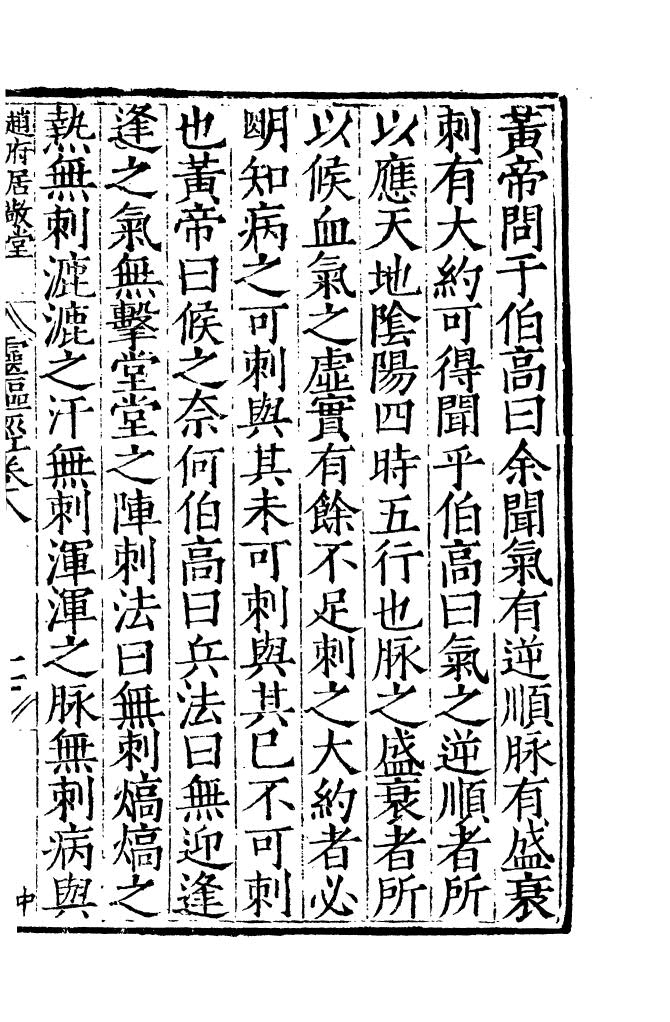 黃帝問于伯高曰余聞氣有逆順脉有盛衰
刺有大約可得聞乎伯高曰氣之逆順者所
以應天地陰陽四時五行也脉之盛衰者所
以候血氣之虛實有餘不足刺之大約者必
明知病之可刺與其未可刺與其已不可刺
也黃帝曰候之奈何伯高曰兵法曰無迎逢
逢之氣無擊堂堂之陣刺法曰無刺熇熇之
熱無刺漉漉之汗無刺渾渾之脉無刺病與
趙府居敬堂
靈樞經卷八
二
中